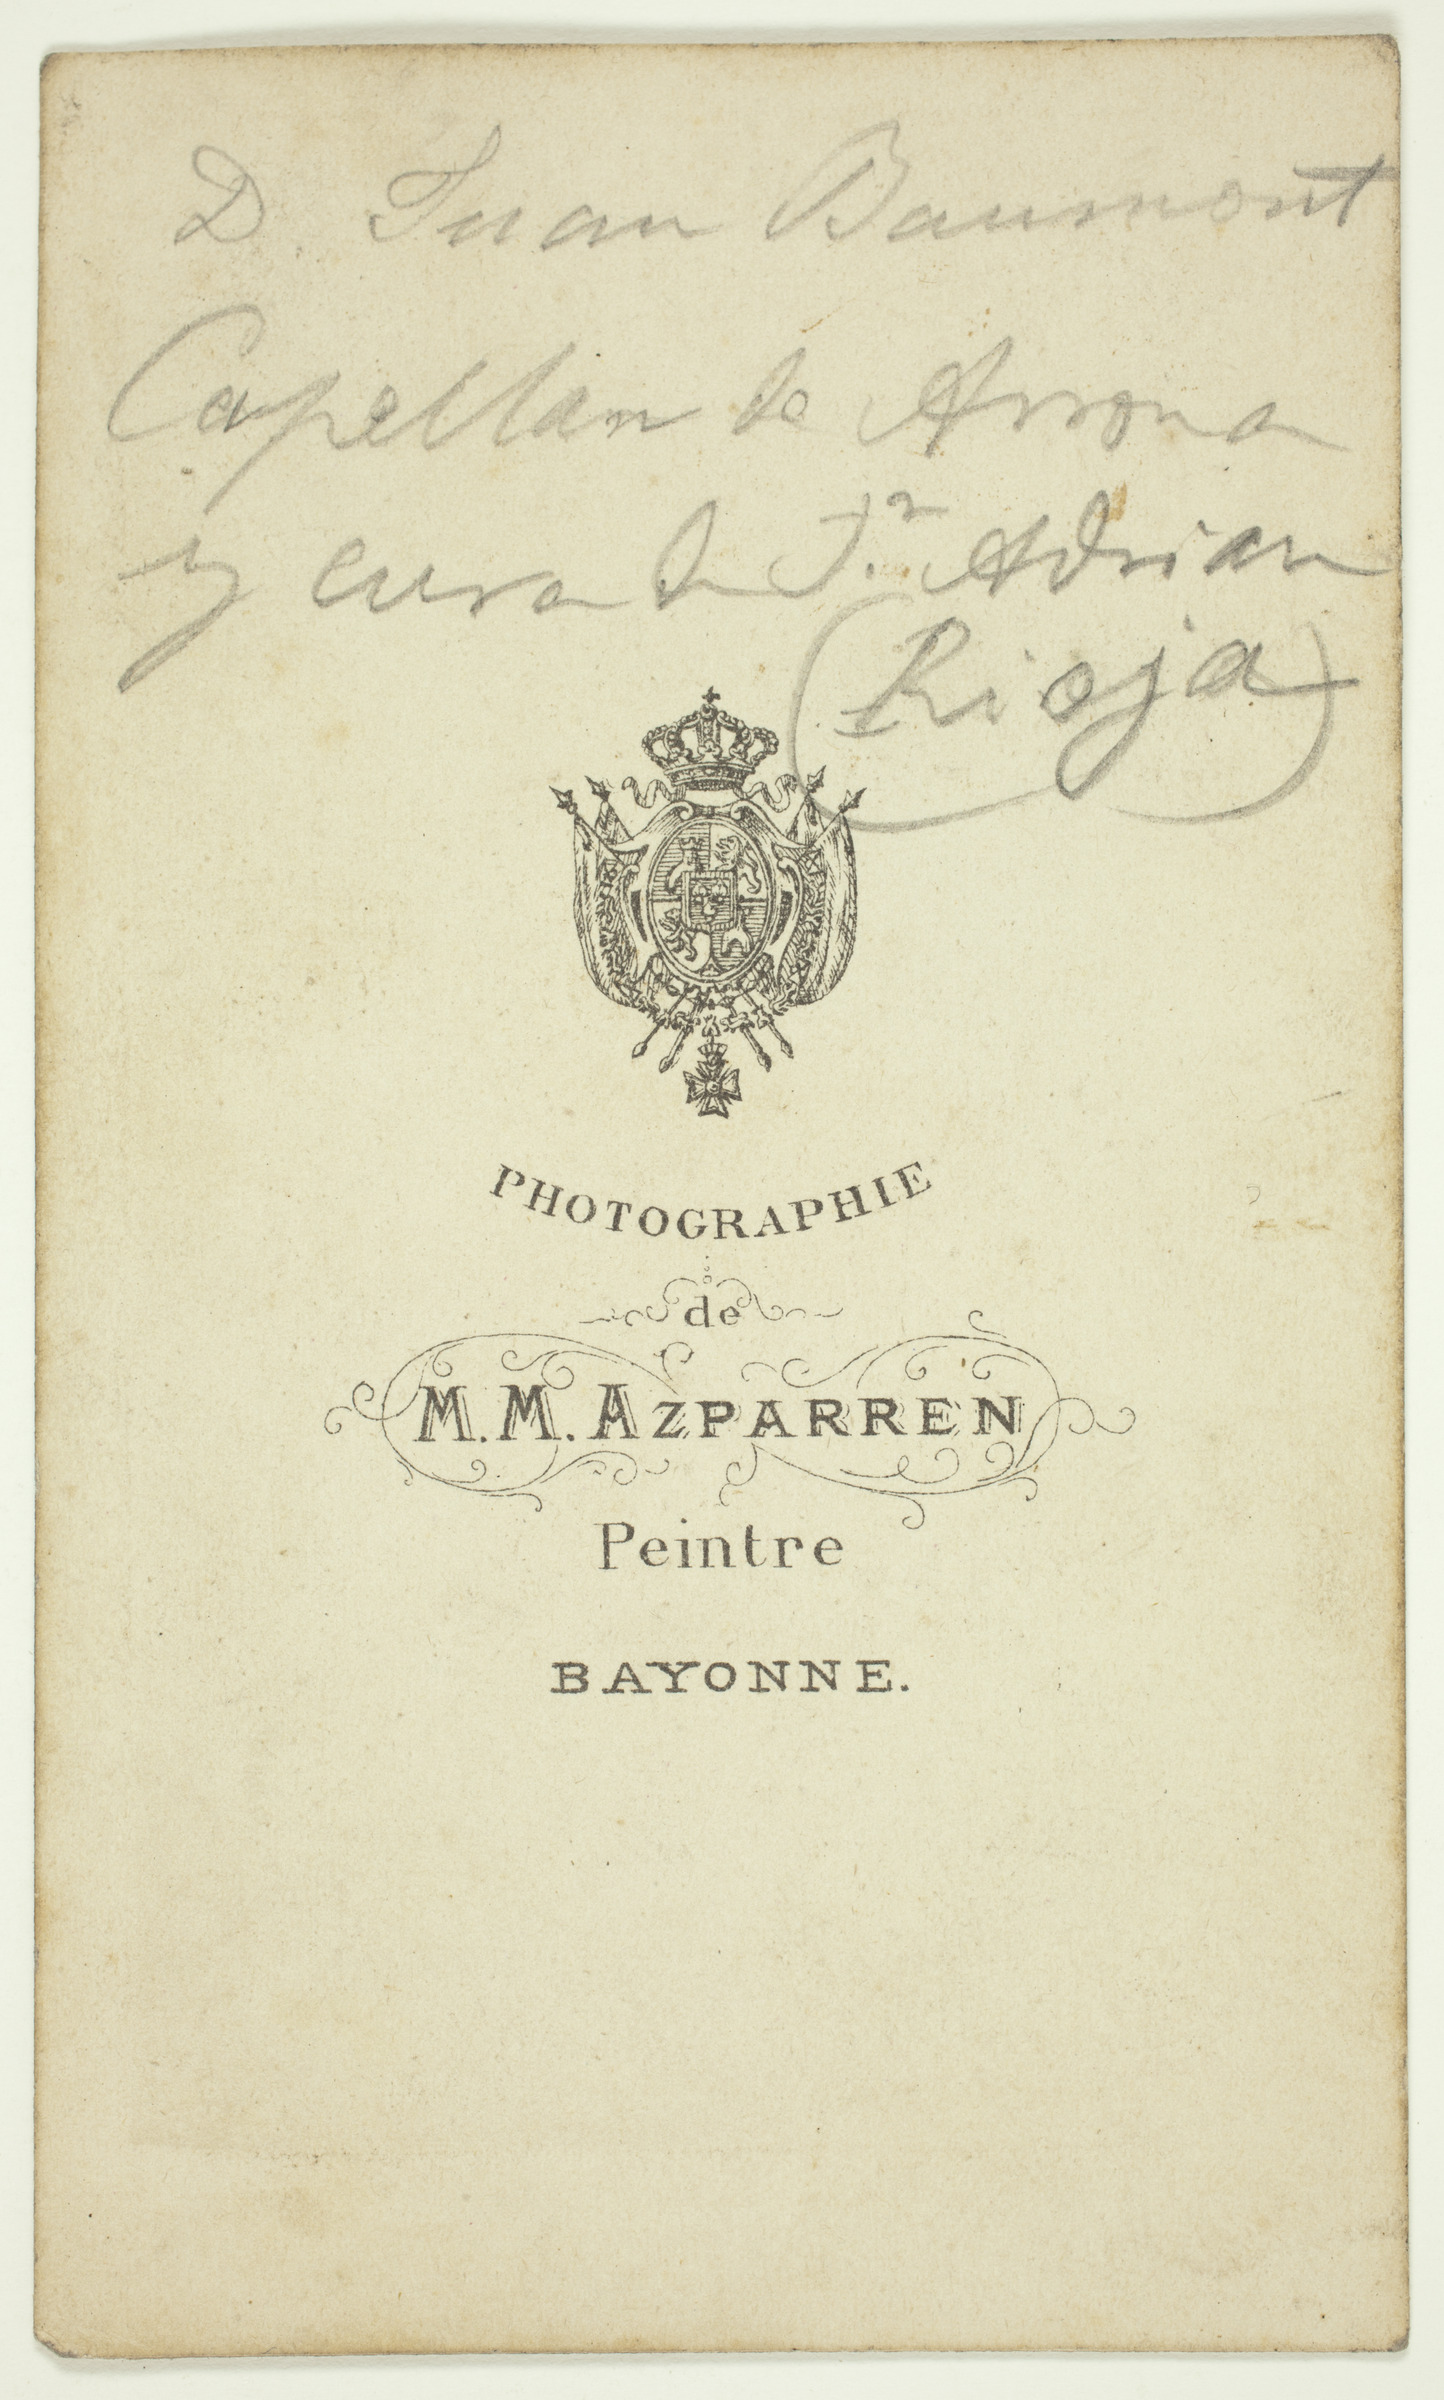 D. Juan Baumont
Capellan de Arrona
y cura de S.n Adrian
(Rioja)
PHOTOGRAPHIE
de
M. M. AZPARREN
Peintre
BAYONNE.